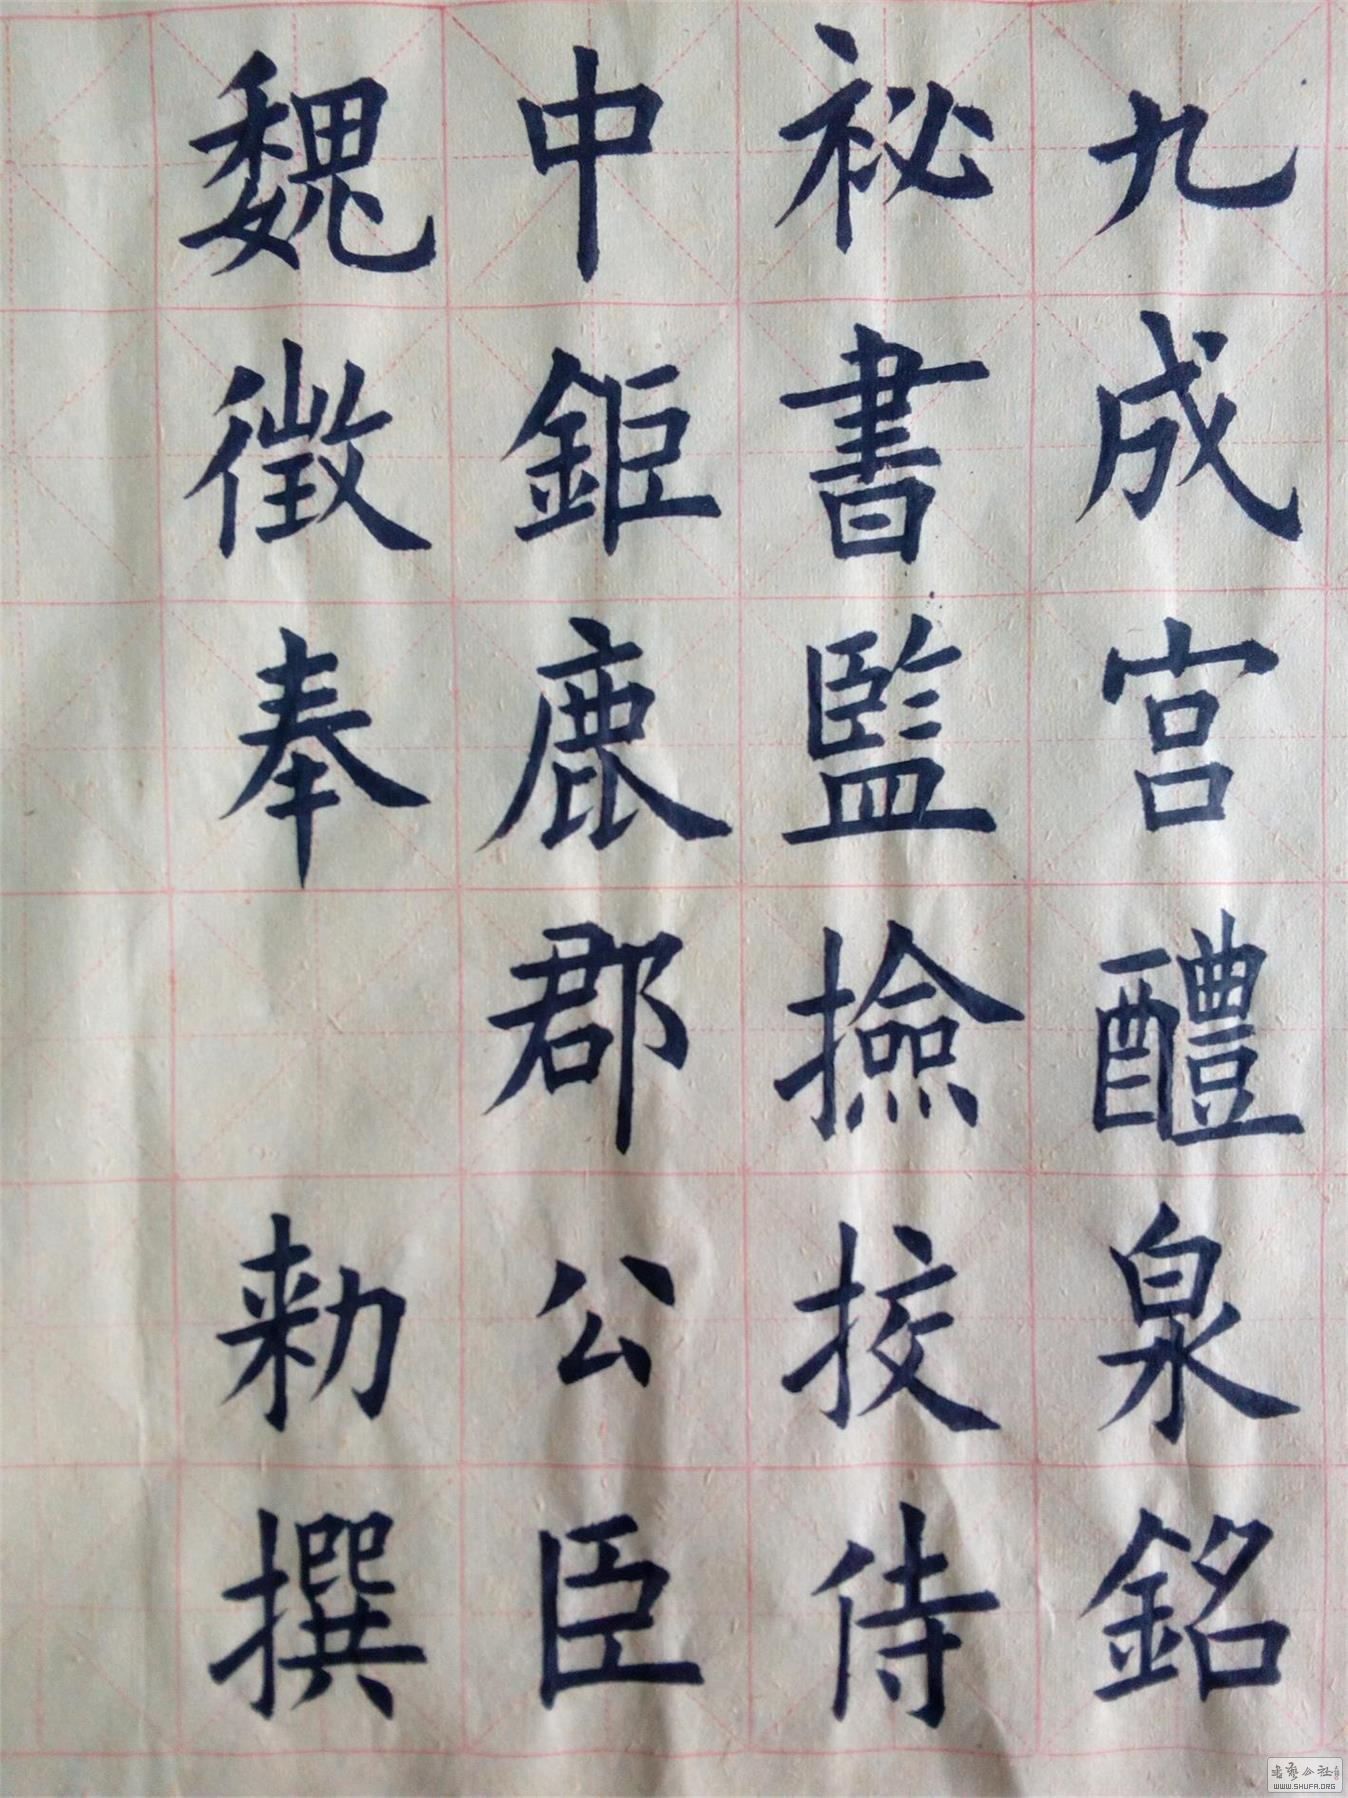 九成宮醴泉銘
祕書監撿挍侍
中鉅鹿郡公臣
魏徵奉 勑撰
书艺公社
WWW.SHUFA.ORG